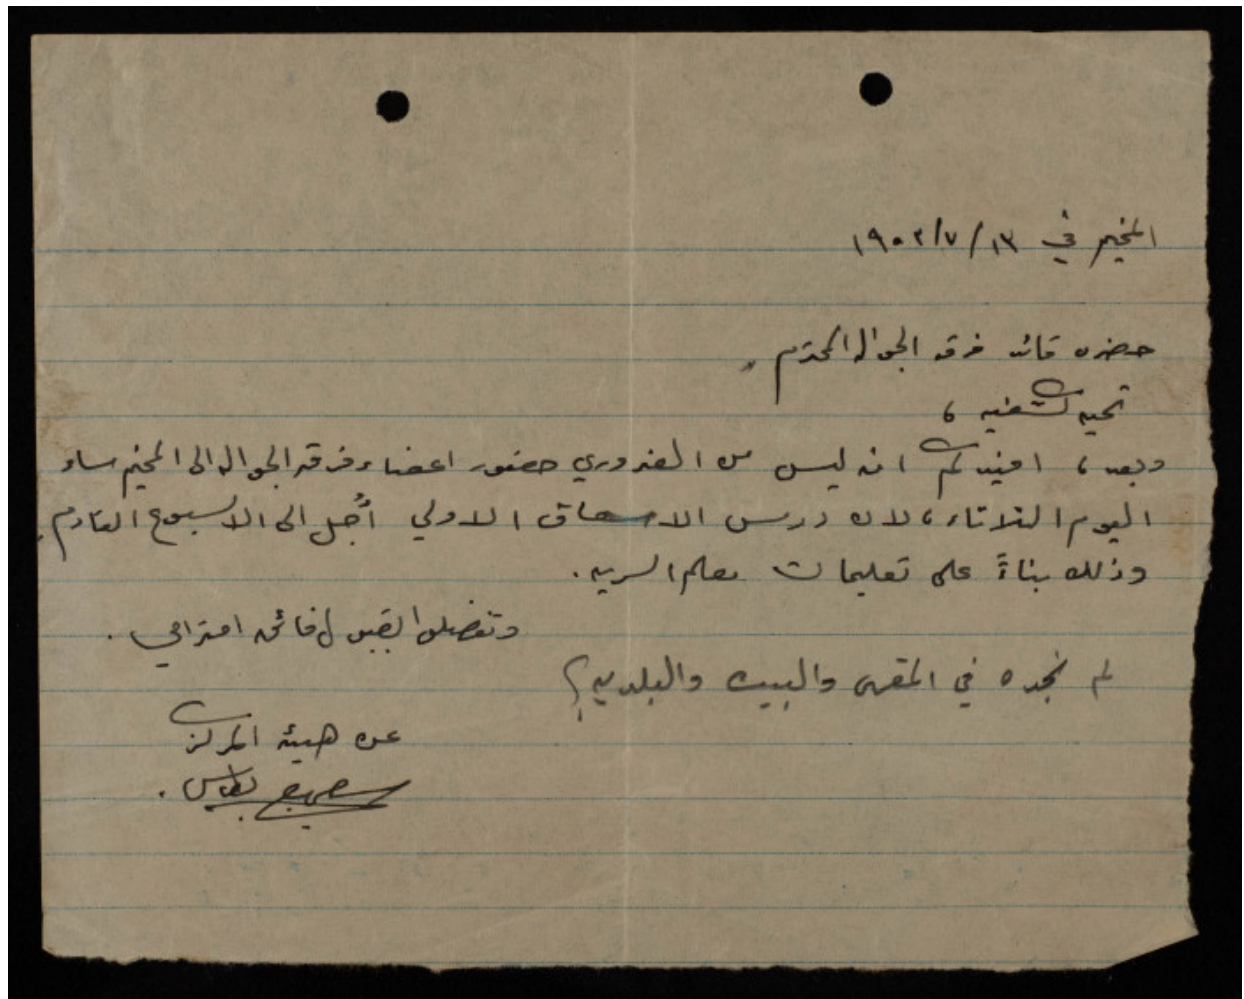 المخيم في ١٣/٧/١٩٥٤
حضرة قائد فرقة الجواله المحترم
تحيه كشفيه ،
وبعد ، افيدكم انه ليس من الضروري حضور اعضاء فرقة الجواله الى المخيم مساء
اليوم الثلاثاء ، لان درس الاسعاف الاولي أُجل الى الاسبوع القادم
وذلك بناءً على تعليمات معلم السريه .
وتفضلوا بقبول فائق احترامي .
لم نجده في المقهى والبيت والبلديه ؟
عن هيئة المركز